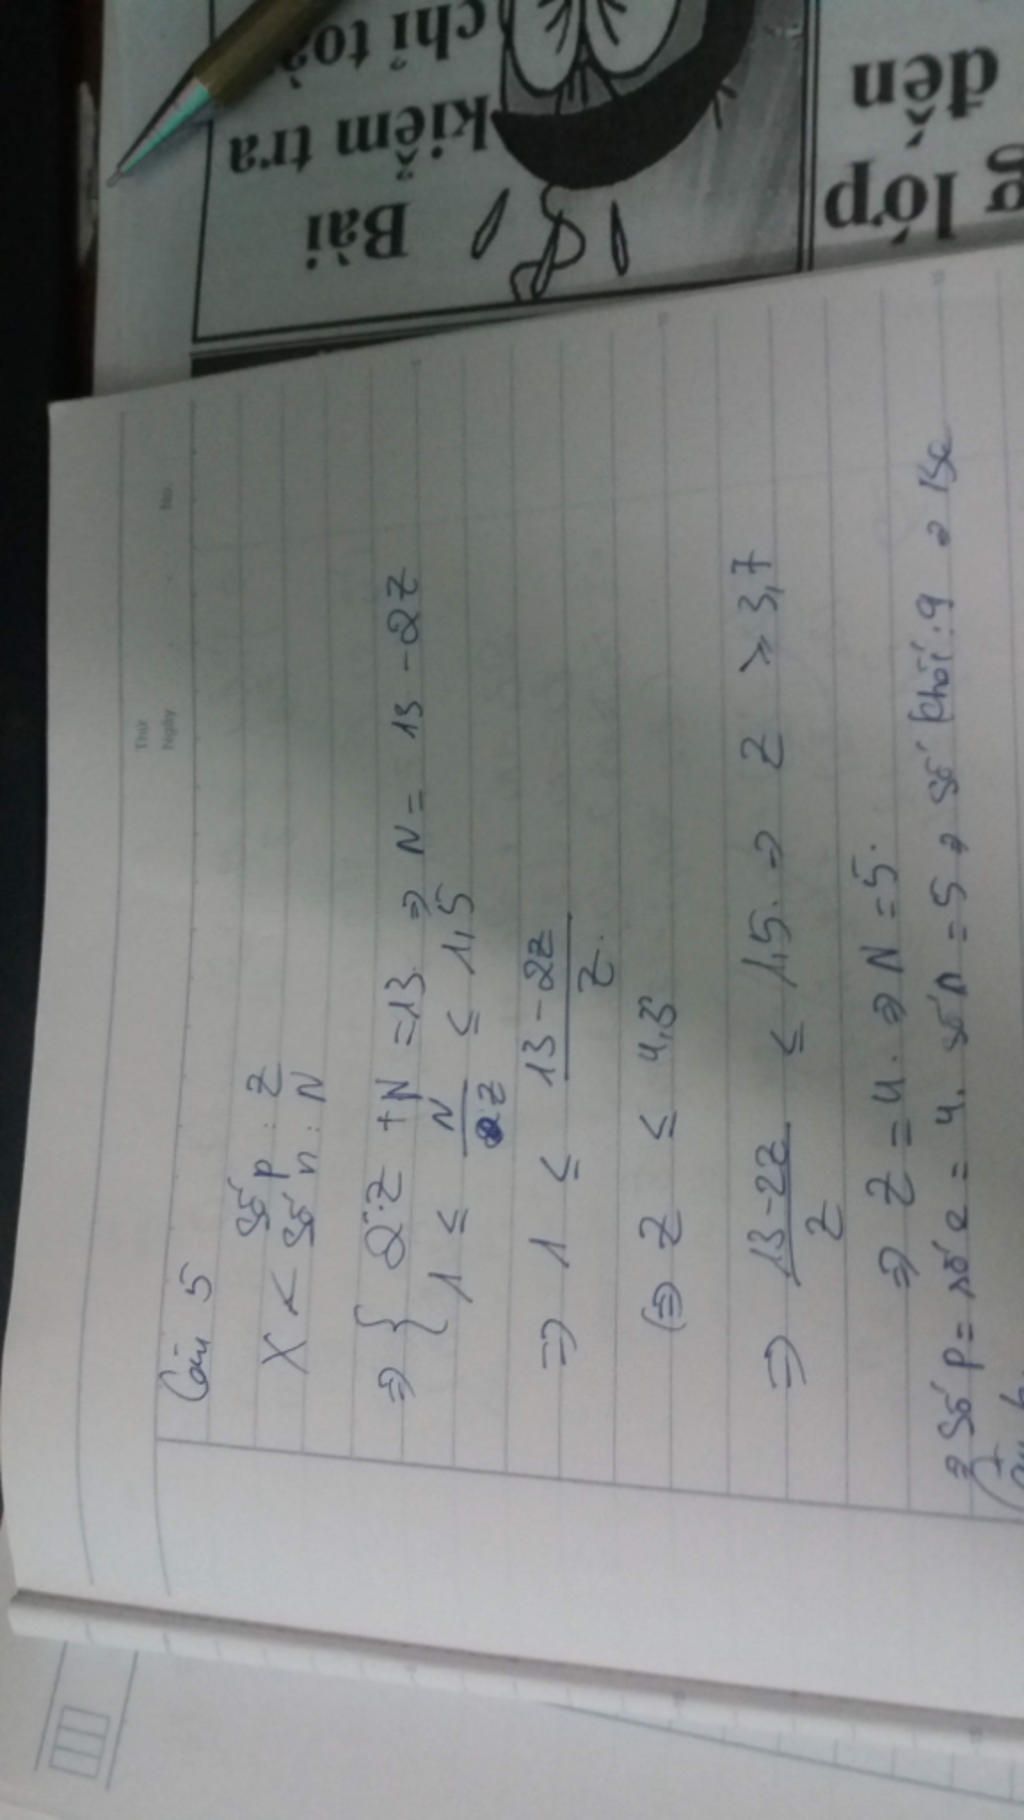 Bài
kiểm tra
chỉ toà
g lớp
đến
Thứ
Ngày
No.
Câu 5
X < số p : Z
số n : N
⇒ { 2.Z + N = 13 ⇒ N = 13 - 2Z
1 ≤ N/Z ≤ 1,5
⇒ 1 ≤ (13 - 2Z)/Z
⇔ Z ≤ 4,3
⇒ (13 - 2Z)/Z ≤ 1,5 ⇒ Z ≥ 3,7
⇒ Z = 4 ⇒ N = 5.
⇒ Số p = số e = 4. số n = 5 ⇒ số khối : 9 ⇒ Be